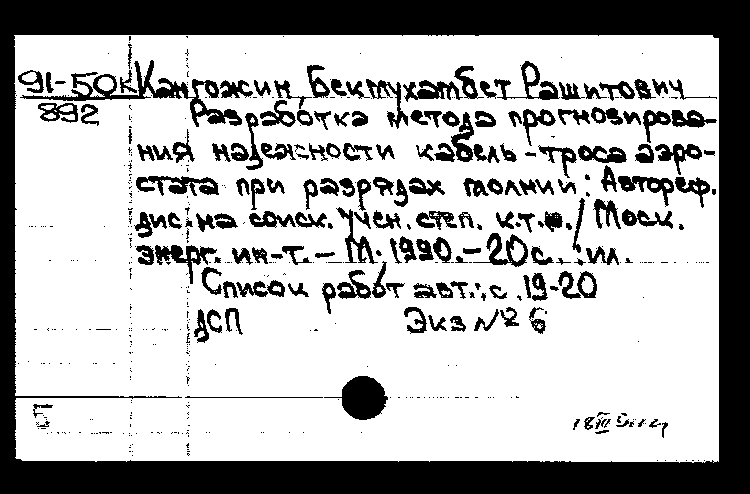 91-50к Кангожин, Бекмухамбет Рашитович
892
Разработка метода прогнозирова-
ния надежности кабель-троса аэро-
стата при разрядах молнии: Автореф.
дис. на соиск. учен. степ. к.т.н. / Моск.
энерг. ин-т. - М. 1990. - 20 с. : ил.
Список работ авт.: с. 19-20
ДСП Экз №26
Б